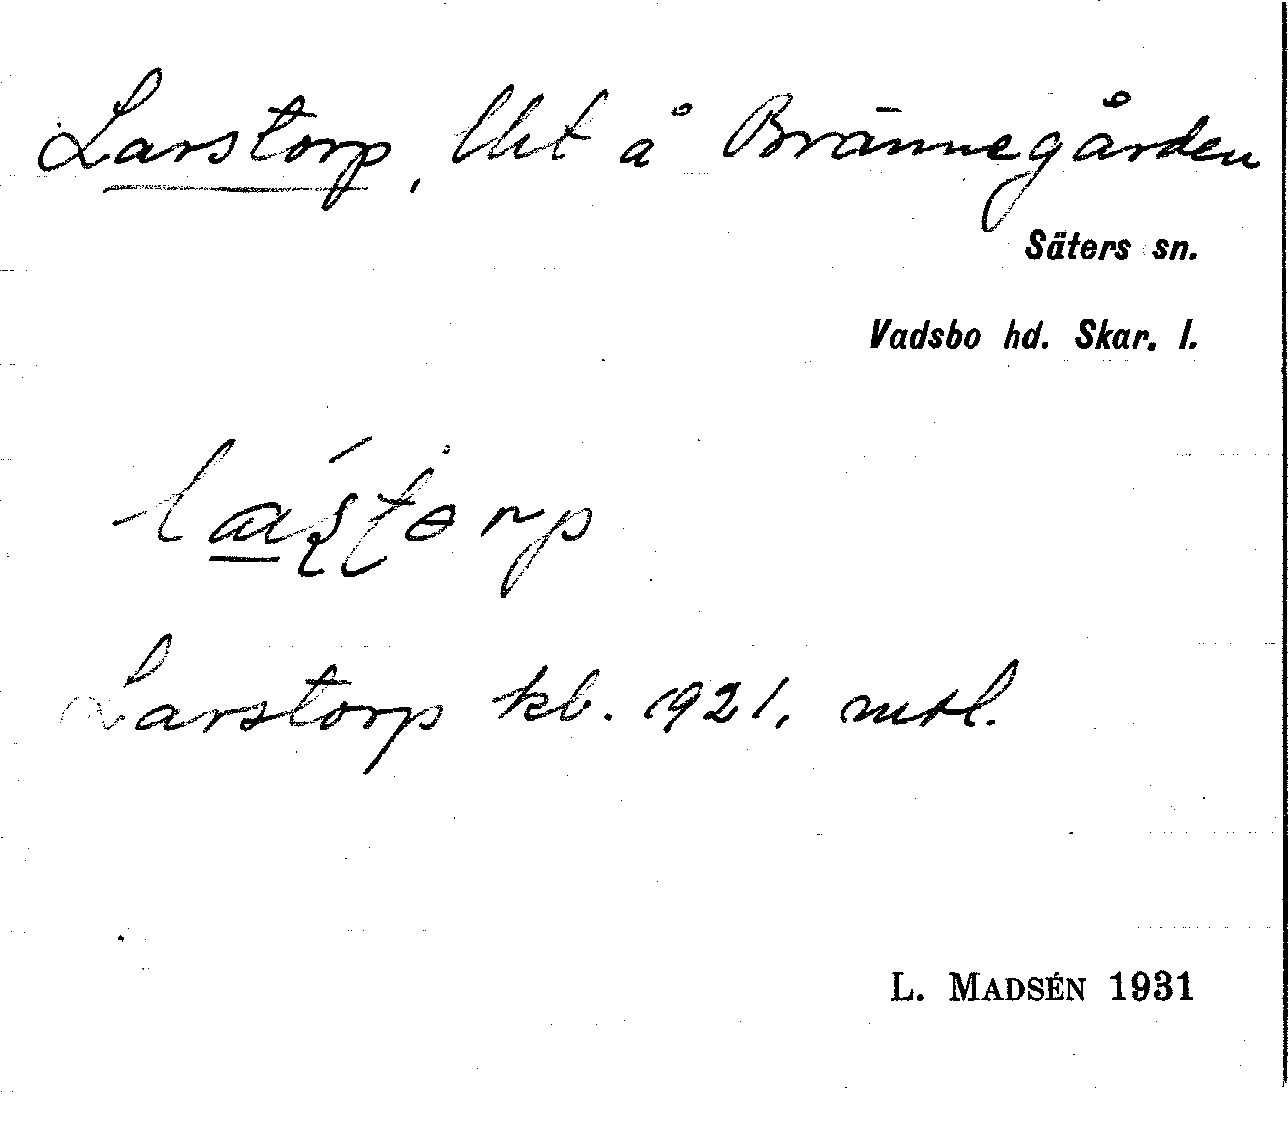 Larstorp, lht å Brännegården
Säters sn.
Vadsbo hd. Skar. l.
Larstorp kb. 1921, mtl.
L. MADSÉN 1931